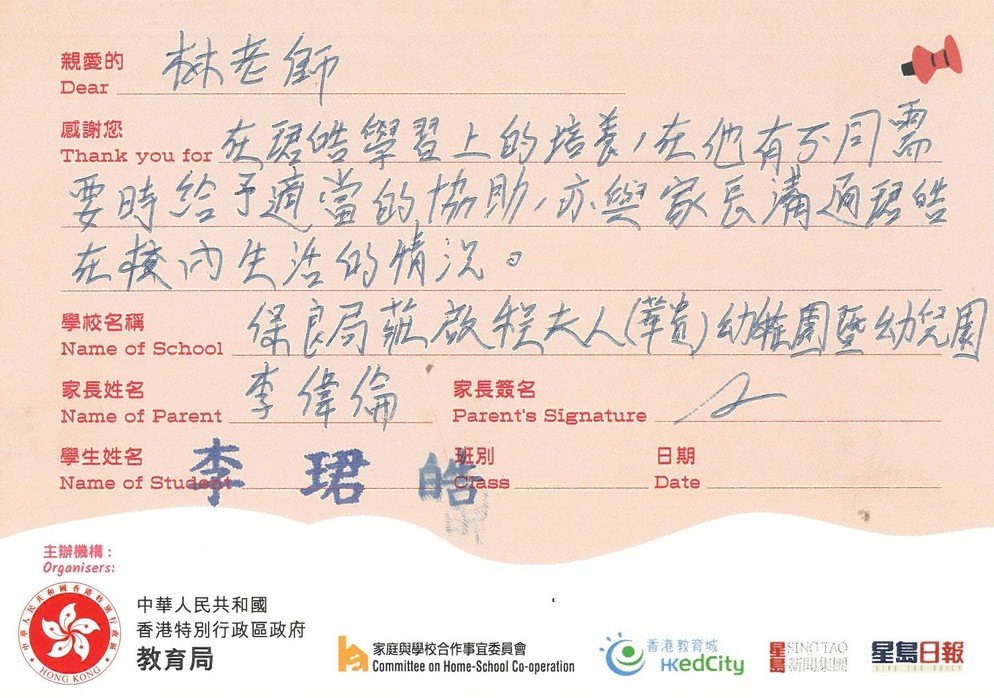 親愛的 林老師
Dear
感謝您
Thank you for 在珺皓學習上的培養,在他有不同需
要時給予適當的協助,亦與家長溝通珺皓
在校內生活的情況。
學校名稱 保良局莊啟程夫人(華貴)幼稚園暨幼兒園
Name of School
家長姓名 李偉倫 家長簽名
Name of Parent Parent's Signature
學生姓名 李珺皓 班別 日期
Name of Student Class Date
主辦機構:
Organisers:
中華人民共和國香港特別行政區政府
HONG KONG
中華人民共和國
香港特別行政區政府
教育局
家庭與學校合作事宜委員會
Committee on Home-School Co-operation
香港教育城
HKedCity
星島 SING TAO
新聞集團
星島日報
SING TAO DAILY